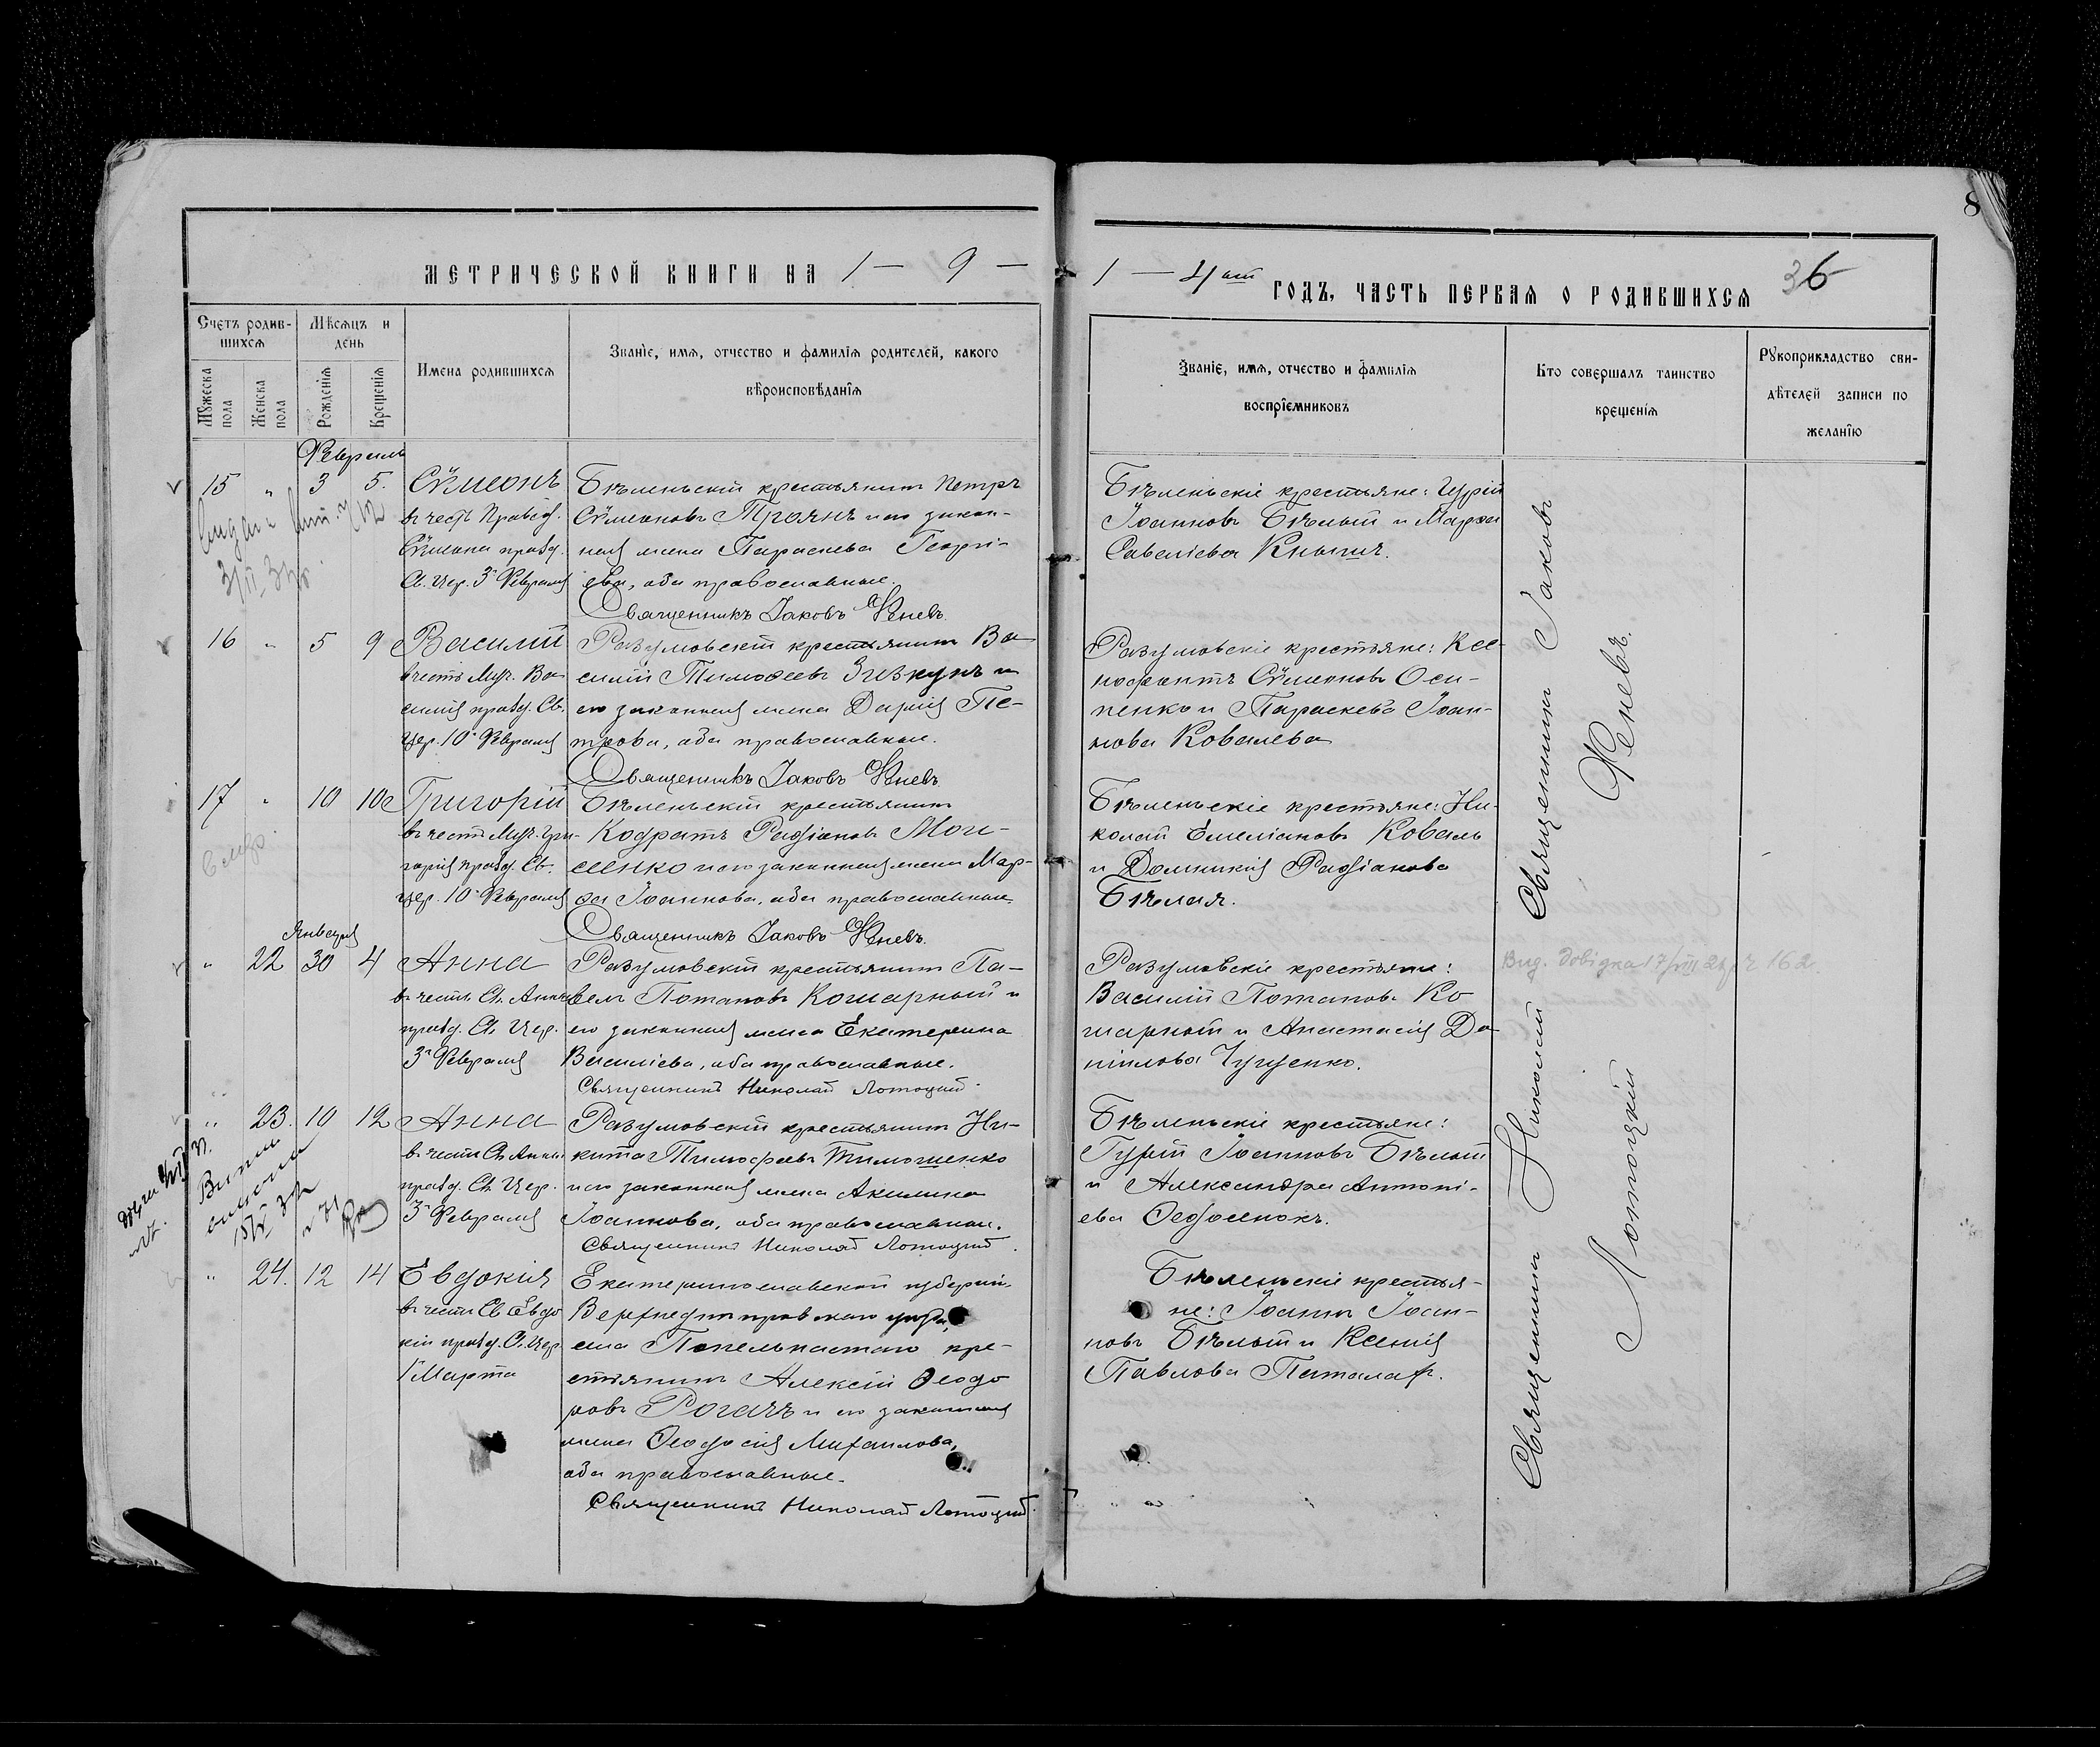 8
МЕТРИЧЕСКОЙ КНИГИ НА 1 — 9 —
1 — 4ый ГОДЪ, ЧАСТЬ ПЕРВАЯ О РОДИВШИХСЯ
36
Счетъ родив-
шихся
Мѣсяцъ и
день
Мужеска
пола
Женска
пола
Рожденія
Крещенія
Имена родившихся
Званіе, имя, отчество и фамилія родителей, какого
вѣроисповѣданія
Званіе, имя, отчество и фамилія
воспріемниковъ
Кто совершалъ таинство
крещенія
Рукоприкладство сви-
дѣтелей записи по
желанію
Февраль
15 " 3 5.
Сѵмеонъ
въ честь Правед.
Сѵмеона празд.
Св. Цер. 3го Февраля
Бѣленьскій крестьянинъ Петръ
Сѵмеоновъ Троянъ и его закон-
ная жена Параскева Георгі-
ева, оба православные.
Священникъ Іаковъ Феневъ.
Бѣленьскіе крестьяне: Гурій
Іоанновъ Бѣлый и Марѳа
Савеліева Кнышъ.
16 " 5 9
Василій
въ честь Муч. Ва-
силія празд. Св.
Цер. 10го Февраля
Разумовскій крестьянинъ Ва-
силій Тимоѳеевъ Зизкунъ и
его законная жена Дарія Пе-
трова, оба православные.
Священникъ Іаковъ Феневъ.
Разумовскіе крестьяне: Ксе-
нофонтъ Сѵмеоновъ Оси-
пенко и Параскева Іоан-
нова Ковалева
17 " 10 10
Григорій
въ честь Муч. Гри-
горія празд. Св.
Цер. 10го Февраля
Бѣленьскій крестьянинъ
Кодратъ Радіоновъ Мои-
сеенко и его законная жена Мар-
ѳа Іоаннова, оба православные.
Священникъ Іаковъ Феневъ.
Бѣленьскіе крестьяне: Ни-
колай Емеліановъ Коваль
и Домникія Радіанова
Бѣлая.
Января
" 22 30 4
Анна
въ честь Св. Анны
празд. Св. Цер.
3го Февраля
Разумовскій крестьянинъ Па-
велъ Потаповъ Кошарный и
его законная жена Екатерина
Василіева, оба православные.
Священникъ Николай Лотоцкій.
Разумовскіе крестьяне:
Василій Потаповъ Ко
шарный и Анастасія Да-
ніилова Чуценко.
Вид. довідка 17/VIII 162
" 23. 10 12
Анна
въ честь Св. Анны
празд. Св. Цер.
3го Февраля
Разумовскій крестьянинъ Ни-
кита Тимофеевъ Тимошенко
и его законная жена Акилина
Іоаннова, оба православные.
Священникъ Николай Лотоцкій.
Бѣленьскіе крестьяне:
Гурій Іоанновъ Бѣлый
и Александра Антоні-
ева Ѳедосенокъ.
" 24. 12 14
Евдокія
въ честь Св. Евдо
кіи празд. Св. Цер.
1 Марта
Екатеринославской губерніи,
Верхнеднѣпровскаго уѣзда,
села Попельнастаго кре-
стьянинъ Алексій Ѳеодо
ровъ Рогачъ и его законная
жена Ѳеодосія Михаилова,
оба православные.
Священникъ Николай Лотоцкій.
Бѣленьскіе крестья-
не: Іоаннъ Іоан-
новъ Бѣлый и Ксенія
Павлова Паталах.
Священникъ Іаковъ
Феневъ.
Священникъ Николай
Лотоцкій